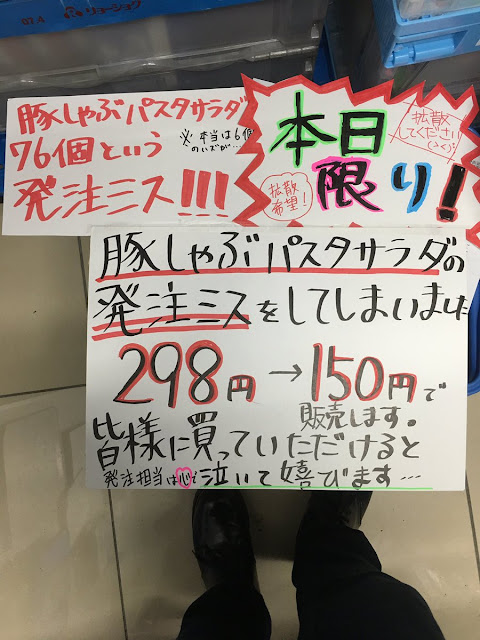 07A リョーショク
豚しゃぶパスタサラダ
76個という
※本当は6個
のハズが…
発注ミス!!!
本日
限り!
拡散
してください
拡散
希望!
豚しゃぶパスタサラダの
発注ミスをしてしまいました
298円→150円で
販売します。
皆様に買っていただけると
発注担当は心で泣いて嬉びます…